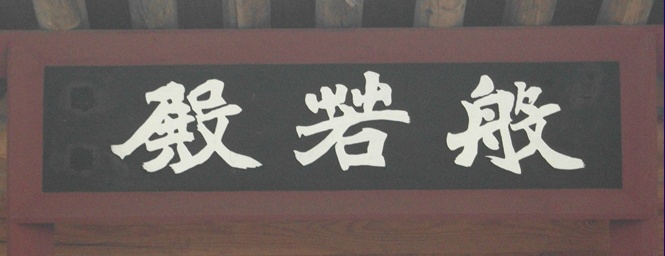 般若殿